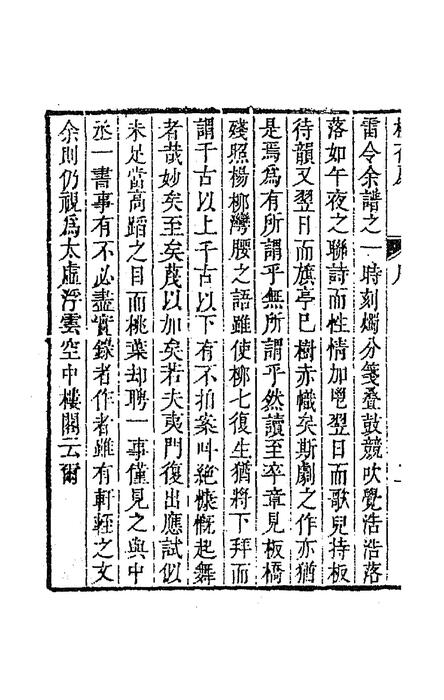 雷令余譜之一時刻燭分箋疊鼓競吹覺浩浩落
落如午夜之聯詩而性情加鬯翌日而歌兒持板
待韻又翌日而旗亭已樹赤幟矣斯劇之作亦猶
是焉爲有所謂乎無所謂乎然讀至卒章見板橋
殘照楊柳灣腰之語雖使柳七復生猶將下拜而
謂千古以上千古以下有不拍案叫絕慷慨起舞
者哉妙矣至矣蔑以加矣若夫夷門復出應試似
未足當高蹈之目而桃葉却聘一事僅見之與中
丞一書事有不必盡實錄者作者雖有軒輊之文
余則仍視爲太虛浮雲空中樓閣云爾